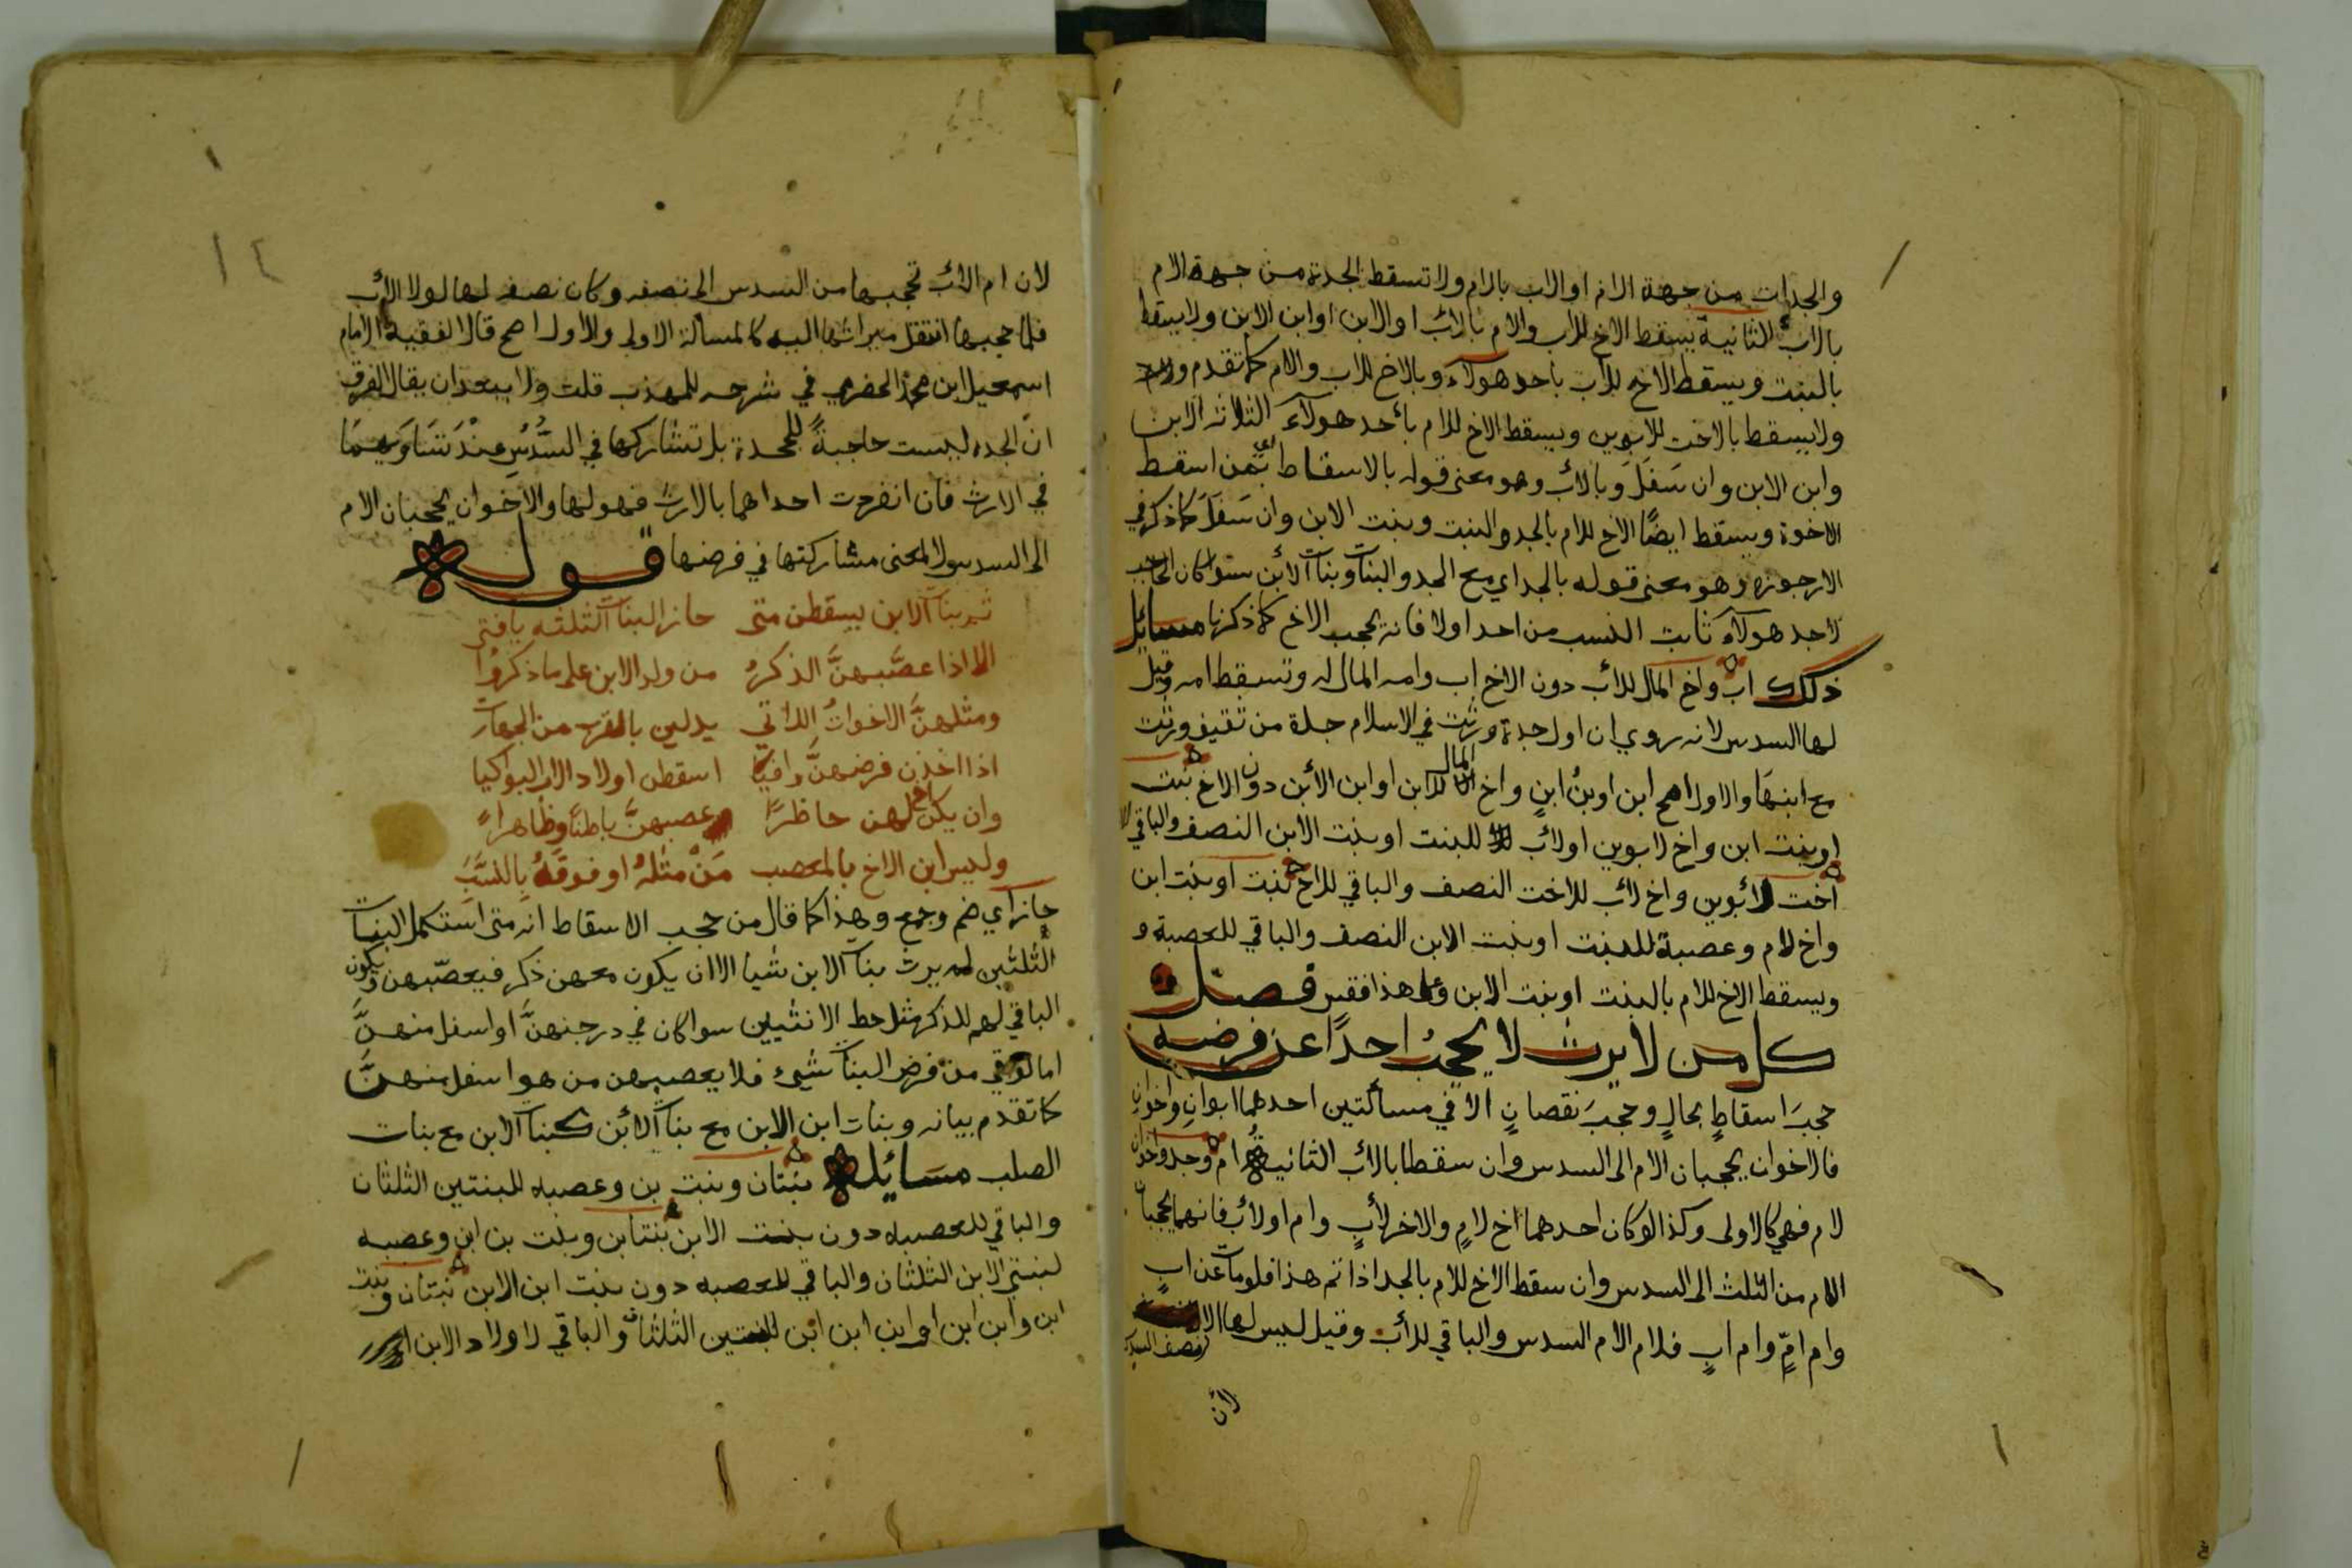 والجدات من جهة الام او الاب بالام ولا تسقط الجدة من جهة الام
بالاب الثانية يسقط الاخ للاب والام بالاب او الابن او ابن الابن ولا يسقط
بالبنت ويسقط الاخ للاب باحد هولآء وبالاخ للاب والام كما تقدم
ولا يسقط بالاخت للابوين ويسقط الاخ للام بأحد هولآء الثلاثه الابن
وابن الابن وان سَفَلَ وبالأب وهو معنى قوله بالاسقاط اي ممن اسقط
الاخوة ويسقط ايضًا الاخ للام بالجد والبنت وبنت الابن وان سَفَلَ كما ذكره في
الارجوزه وهو معنى قوله بالجد اي مع الجد والبنات وبنات الأبن سوا كان الحاجب
لاحد هولآء ثابت النسب من احد اولا فانه يحجب الاخ كما ذكرنا مسائل
ذلك اب واخ المال للأب دون الاخ اب وامه المال له وتسقط امه وقيل
لها السدس لانه روي ان اول جدة ورثت في الاسلام جدة من ثقيف ورثت
مع ابنها والاول اصح ابن او بنُ ابنٍ واخ المال للابن او ابن الأبن دون الاخ بنت
او بنت ابن واخ لابوين او لأب للبنت او بنت الابن النصف والباقي
اخت لأبوين واخ لأب للاخت النصف والباقي للاخ بنت او بنت ابن
واخ لام وعصبة للبنت او بنت الابن النصف والباقي للعصبة و
ويسقط الاخ للام بالبنت او بنت الابن وعلى هذا فقس فصل
كل من لا يرث لا يحجبُ احدًا عن فرضه
حجبَ اسقاطٍ بحالٍ وحجبَ نقصانٍ الا في مسألتين احدهما ابوانِ واخوانِ
فالاخوان يحجبان الام الى السدس وان سقطا بالأب الثانية ام وجد واخوان
لام فهي كالاولى وكذا لو كان احدهما اخ لامٍ والاخر لأبٍ وام او لأب فانهما يحجبان
الام من الثلث الى السدس وان سقط الاخ للام بالجد اذا تم هذا فلو مات عن ابٍ
وام امٍّ وام ابٍ فلام الام السدس والباقي للأب وقيل ليس لها الا
نصف السدس
لأن
١٤
لان ام الأب تحجبها من السدس الى نصفه وكان نصفه لها لولا الأب
فلما حجبها انتقل ميراثها اليه كالمسألة الاولى والأول اصح قال الفقيه الامام
اسمعيل ابن محمد الحضرمي في شرحه للمهذب قلت ولا يبعد ان يقال الفرق
انّ الجده ليست حاجبةً للجدة بل تشاركها في السُّدُسِ عِنْدَ تَسَاوَيهِمَا
في الارث فان انفردت احداهما بالارث فهو لها والاخوان يحجبان الام
الى السدس لا لمعنى مشاركتها في فرضها قوله
ثم بنات الابن يسقطن متى حاز البنات الثلثه يا فتى
الا اذا عصَّبهنَّ الذكرُ من ولد الابن على ما ذكروُا
ومثلهنَّ الاخواتُ اللاتي يدلين بالقرب من الجهات
اذا اخذن فرضهنَّ وافيًا اسقطن اولاد الاب البواكيا
وان يكن اخ لهن حاظرًا عصبهنَّ باطنًا وظاهراً
وليس ابن الاخ بالمعصب مَنْ مثلهُ او فوقَهُ بالنسَّبَ
حاز اي ضم وجمع وهذا كما قال من حجب الاسقاط انه متى استكمل البنات
الثلثين لم يرث بنات الابن شيا الا ان يكون معهن ذكر فيعصّبهن ويكون
الباقي لهم للذكر مثل حظ الانثيين سوا كان في درجتهنَّ او اسفل منهنَّ
اما لو بقي من فرض البنات شيئ فلا يعصبهن من هو اسفل منهنَّ
كما تقدم بيانه وبنات ابن الابن مع بنات الأبن كبنات الابن مع بنات
الصلب مسائل بنتان وبنت بن وعصبه للبنتين الثلثان
والباقي للعصبه دون بنت الابن بنتا بن وبنت بن ابن وعصبه
لبنتي الابن الثلثان والباقي للعصبه دون بنت ابن الابن بنتان وبنت
ابن وابن ابن او ابن ابن ابن للبنتين الثلثان والباقي لاولاد الابن